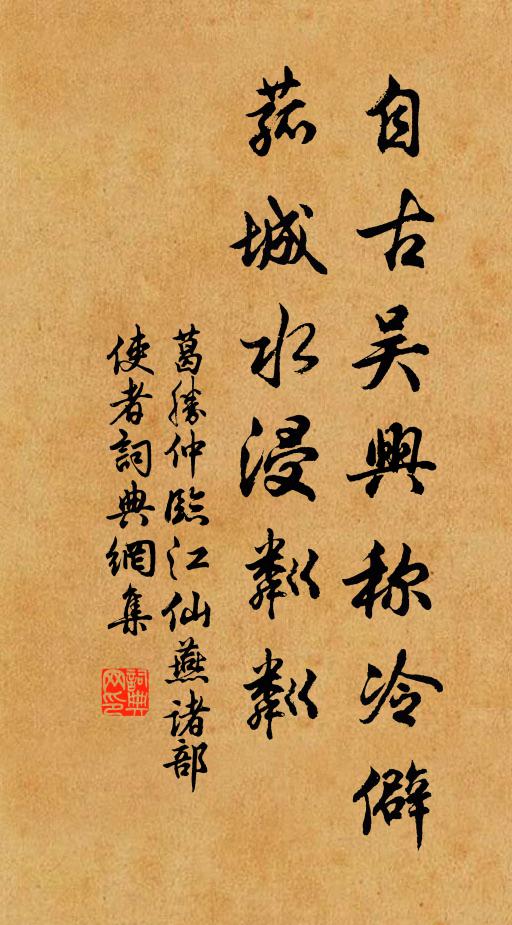 自古吴興称冷僻
菰城水浸粼粼
葛勝仲臨江仙燕诸部
使者詞典網集
詞典网印